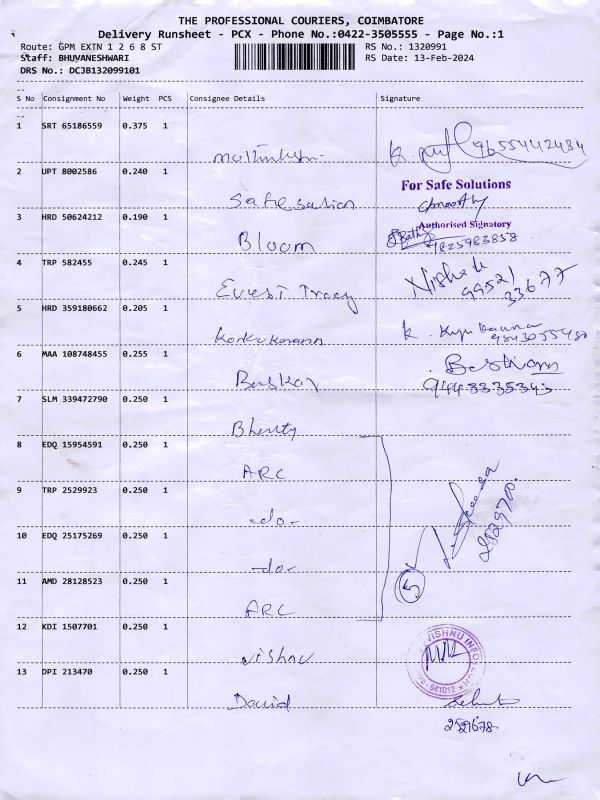 THE PROFESSIONAL COURIERS, COIMBATORE
Delivery Runsheet - PCX - Phone No.:0422-3505555 - Page No.:1
Route: GPM EXTN 1 2 6 8 ST RS No.: 1320991
Staff: BHUVANESHWARI RS Date: 13-Feb-2024
DRS No.: DCJB132099101
S No Consignment No Weight PCS Consignee Details Signature
1 SRT 65186559 0.375 1
9655442484
2 UPT 8002586 0.240 1
For Safe Solutions
3 HRD 50624212 0.190 1
Authorised Signatory
Bloom 9825983858
4 TRP 582455 0.245 1
Tracy 99521
33677
5 HRD 359180662 0.205 1
6 MAA 108748455 0.255 1
Baskar 9443335343
7 SLM 339472790 0.250 1
8 EDQ 15954591 0.250 1
ARC
9 TRP 2529923 0.250 1
-do-
10 EDQ 25175269 0.250 1
-do-
11 AMD 28128523 0.250 1
5
ARC
12 KDI 1507701 0.250 1
VISHNU INFO
641012
vishnu
13 DPI 213470 0.250 1
David